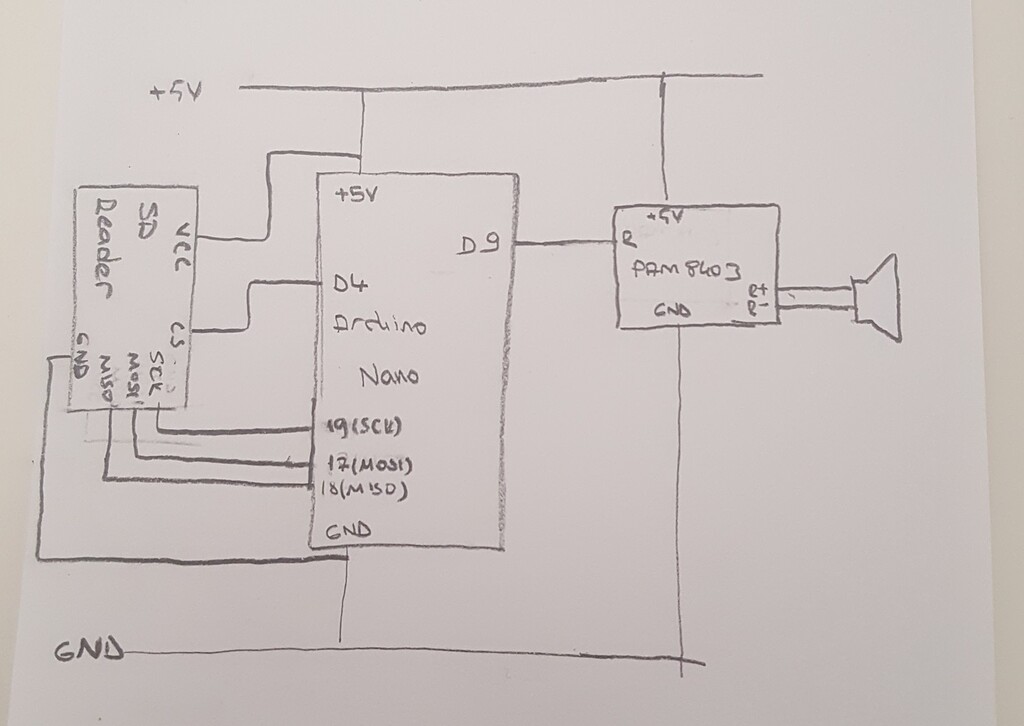 +5V
SD
Reader
VCC
CS
SCK
MOSI
MISO
GND
+5V
D9
D4
Arduino
Nano
19(SCK)
17(MOSI)
18(MISO)
GND
+5V
R
PAM8403
R+
R-
GND
GND